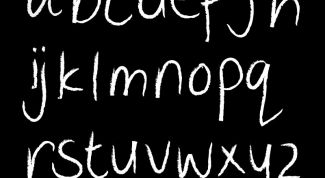 abcdefgh
ijklmnopq
rstuvwxyz